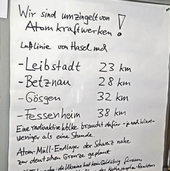 Wir sind umzingelt von
Atomkraftwerken!
Luftlinie von Hasel nach
-Leibstadt 23 km
-Betznau 28 km
-Gösgen 32 km
-Fessenheim 38 km
Eine radioaktive Wolke braucht dafür
weniger als eine Stunde
Atom-Müll-Endlager der Schweiz nahe
zur deutschen Grenze geplant